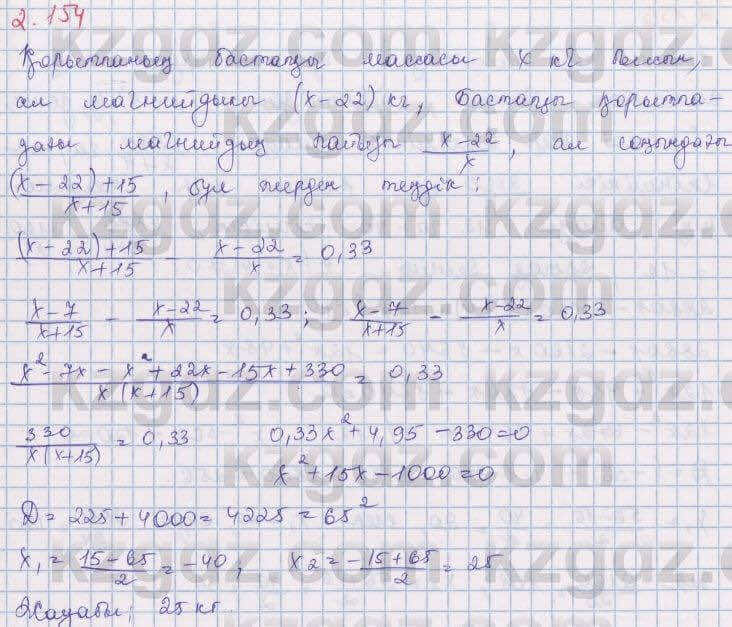 2.154
Қорытпаның бастапқы массасы x кг болсын,
ал магнийдыкі (x-22) кг, бастапқы қорытпа-
дағы магнийдың пайызы \frac{x-22}{x}, ал соңындағы
\frac{(x-22)+15}{x+15}, бұл жерден теңдік:
\frac{(x-22)+15}{x+15} - \frac{x-22}{x} = 0,33
\frac{x-7}{x+15} - \frac{x-22}{x} = 0,33; \frac{x-7}{x+15} - \frac{x-22}{x} = 0,33
\frac{x²-7x-x²+22x-15x+330}{x(x+15)} = 0,33
\frac{330}{x(x+15)} = 0,33 0,33x²+4,95-330=0
x²+15x-1000=0
D = 225+4000=4225=65²
x₁ = \frac{15-65}{2} = -40, x₂ = \frac{-15+65}{2} = 25
Жауабы: 25 кг
kzgdz.com